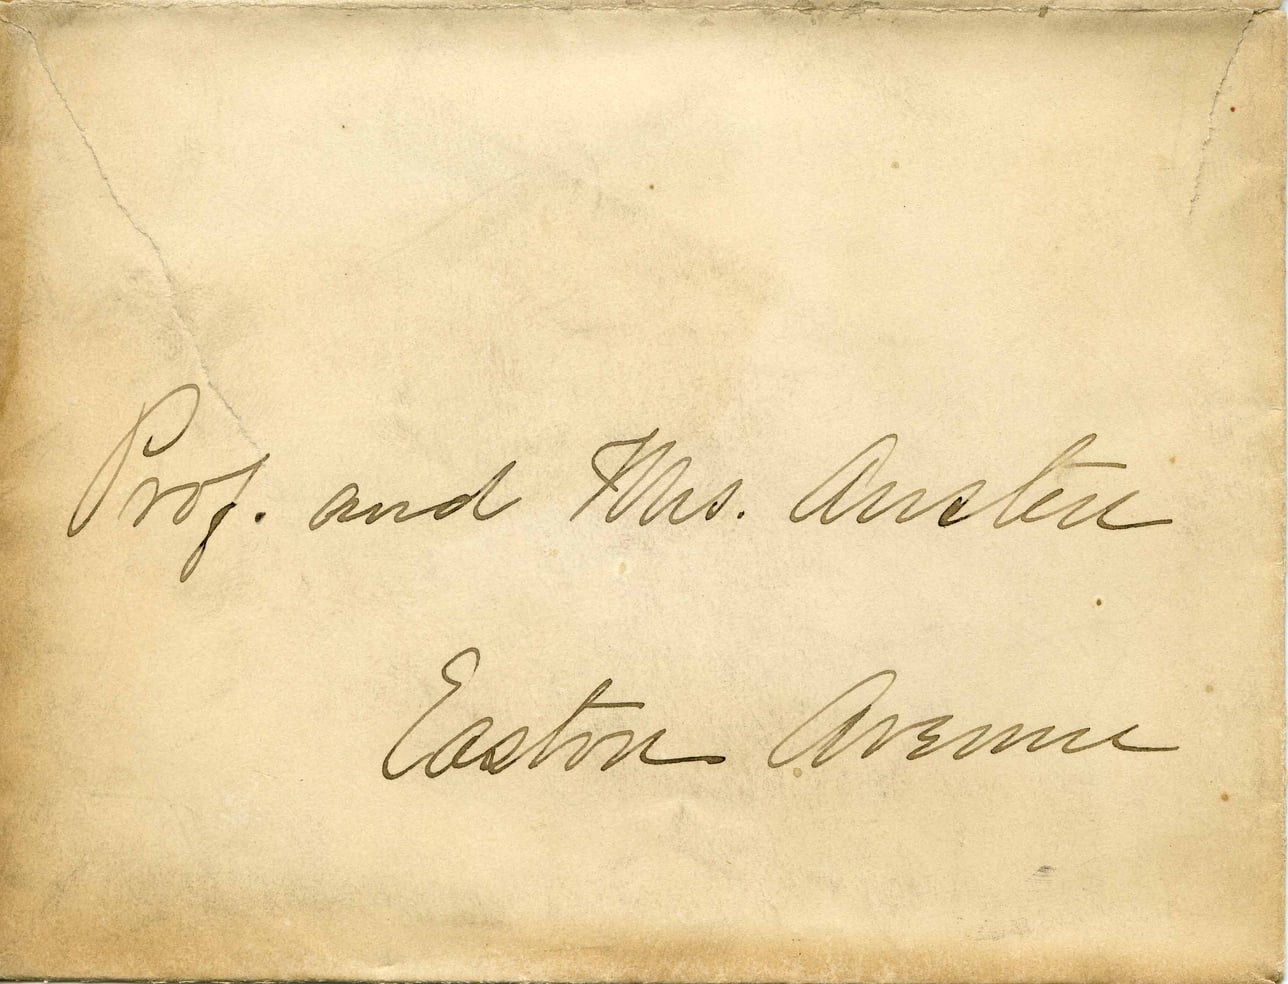 Prof. and Mrs. Austen
Easton Avenue